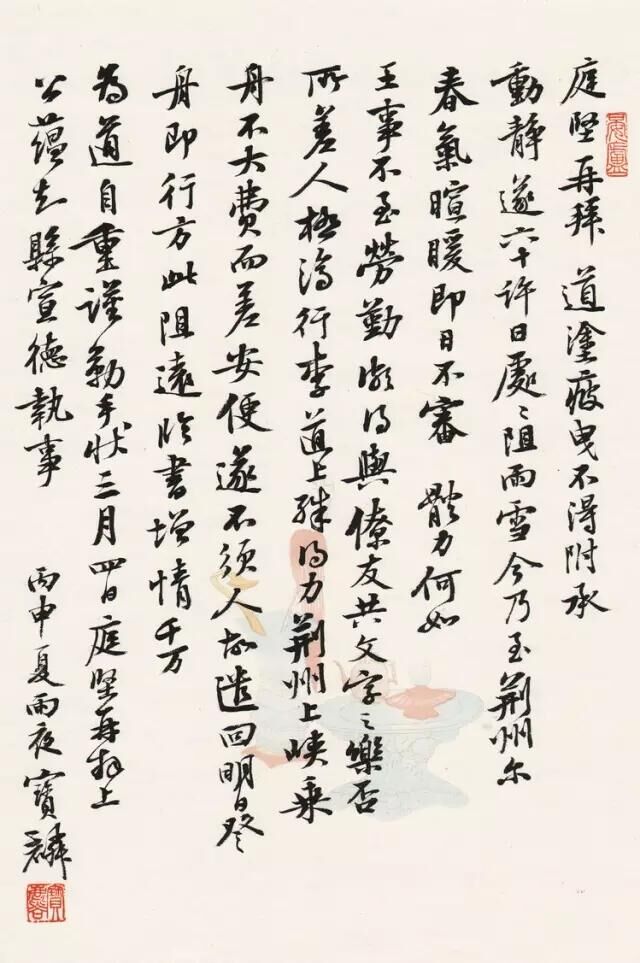 庭堅再拜 道塗疲曳不得附承
動靜遂六十許日處〻阻雨雪今乃至荆州尔
春氣暄暖即日不審 體力何如
王事不至勞勤頗得與僚友共文字之樂否
所差人極濟行李道上殊得力荆州上峽乘
舟不大費而差安便遂不須人故遣回明日登
舟即行方此阻遠臨書增情千万
為道自重謹勒手狀三月四日庭堅再拜上
公蕴知縣宣德執事
丙申夏雨夜寶麟